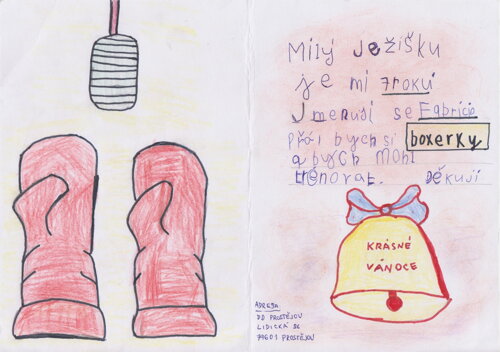 Milý Ježíšku
je mi 7roků
Jmenuji se Fabricio
Přál bych si boxerky
abych mohl
trénovat. Děkuji
KRÁSNÉ
VÁNOCE
ADRESA
DD PROSTĚJOV
LIDICKÁ 86
79601 PROSTĚJOV